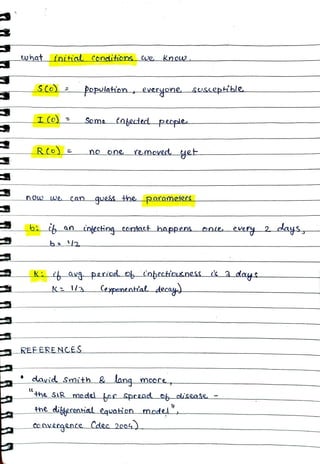 what initial conditions we know.
S(0) = population, everyone susceptible
I(0) = some infected people
R(0) = no one removed yet
now we can guess the parameters
b: if an infecting contact happens once every 2 days,
b = 1/2
K: if avg. period of infectiousness is 3 days
K = 1/3 (exponential decay)
REFERENCES
• david smith & lang moore,
"the SIR model for spread of disease -
the differential equation model",
convergence (dec 2004)